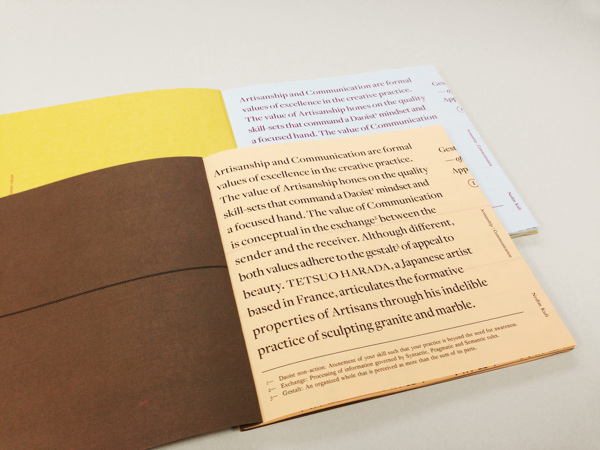 Artisanship and Communication are formal
values of excellence in the creative practice.
The value of Artisanship hones on the quality
skill-sets that command a Daoist¹ mindset and
a focused hand. The value of Communication
Artisanship and Communication are formal
values of excellence in the creative practice.
The value of Artisanship hones on the quality
skill-sets that command a Daoist¹ mindset and
a focused hand. The value of Communication
is conceptual in the exchange² between the
sender and the receiver. Although different,
both values adhere to the gestalt³ of appeal to
beauty. TETSUO HARADA, a Japanese artist
based in France, articulates the formative
properties of Artisans through his indelible
practice of sculpting granite and marble.
1— Daoist non-action: Attunement of your skill such that your practice is beyond the need for awareness.
2— Exchange: Processing of information governed by Syntactic, Pragmatic and Semantic rules.
3— Gestalt: An organized whole that is perceived as more than the sum of its parts.
Gest
—of
App
1
Artisanship / Communication